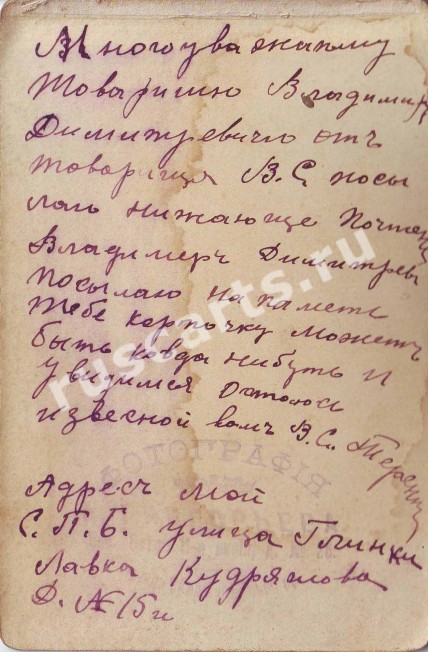 Многоуважаиму
Товарищю Владимир
Димитревичю отъ
товарища В. С. посы
лаю нижающе Почтени
Владимеръ Димитрев
посылаю на паметь
тебе карточкуможетъ
быть ковда нибуть и
увидимся Остаюсь
извесной вамъ В. С.
ФОТОГРАФІЯ
Адресъ мой
С. П. Б. улица Глинки
Лавка Кудряшова
Д. № 15й
ruscarts.ru